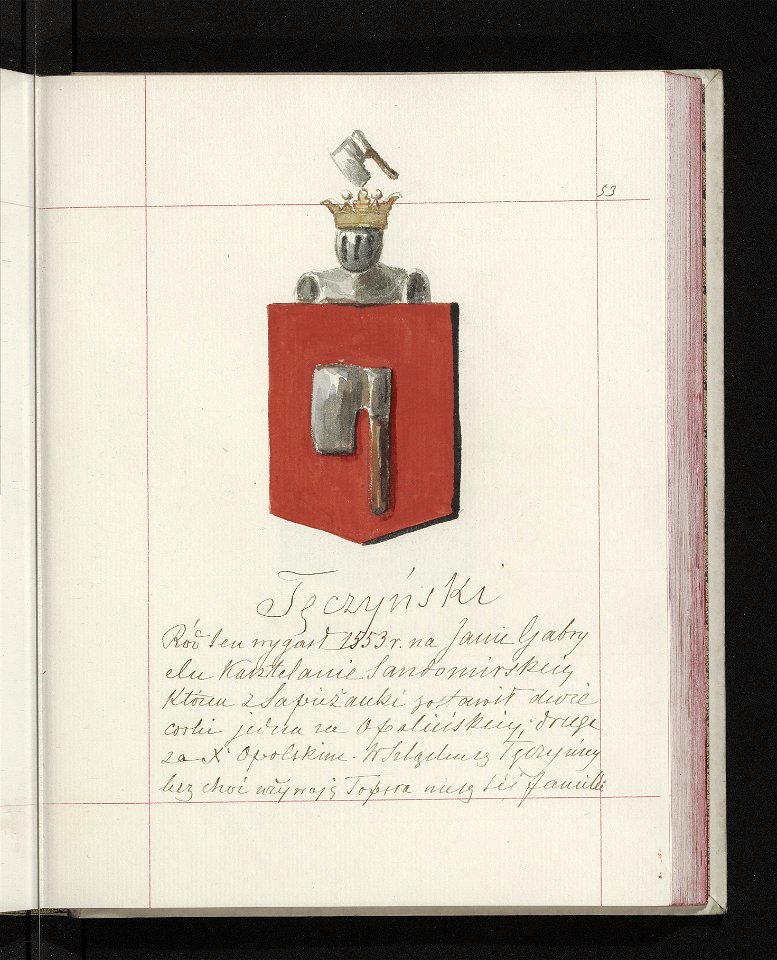 53
Tęczyński
Ród ten wygasł 1553 r. na Janie Gabry
elu Kasztelanie Sandomirskim
który z Sapieżanki zostawił dwie
corki jedna za Opalińskim, druga
za X. Opolskim. W Szląsku są Tęczyńscy
lecz choć używają Topora nie są téj familii